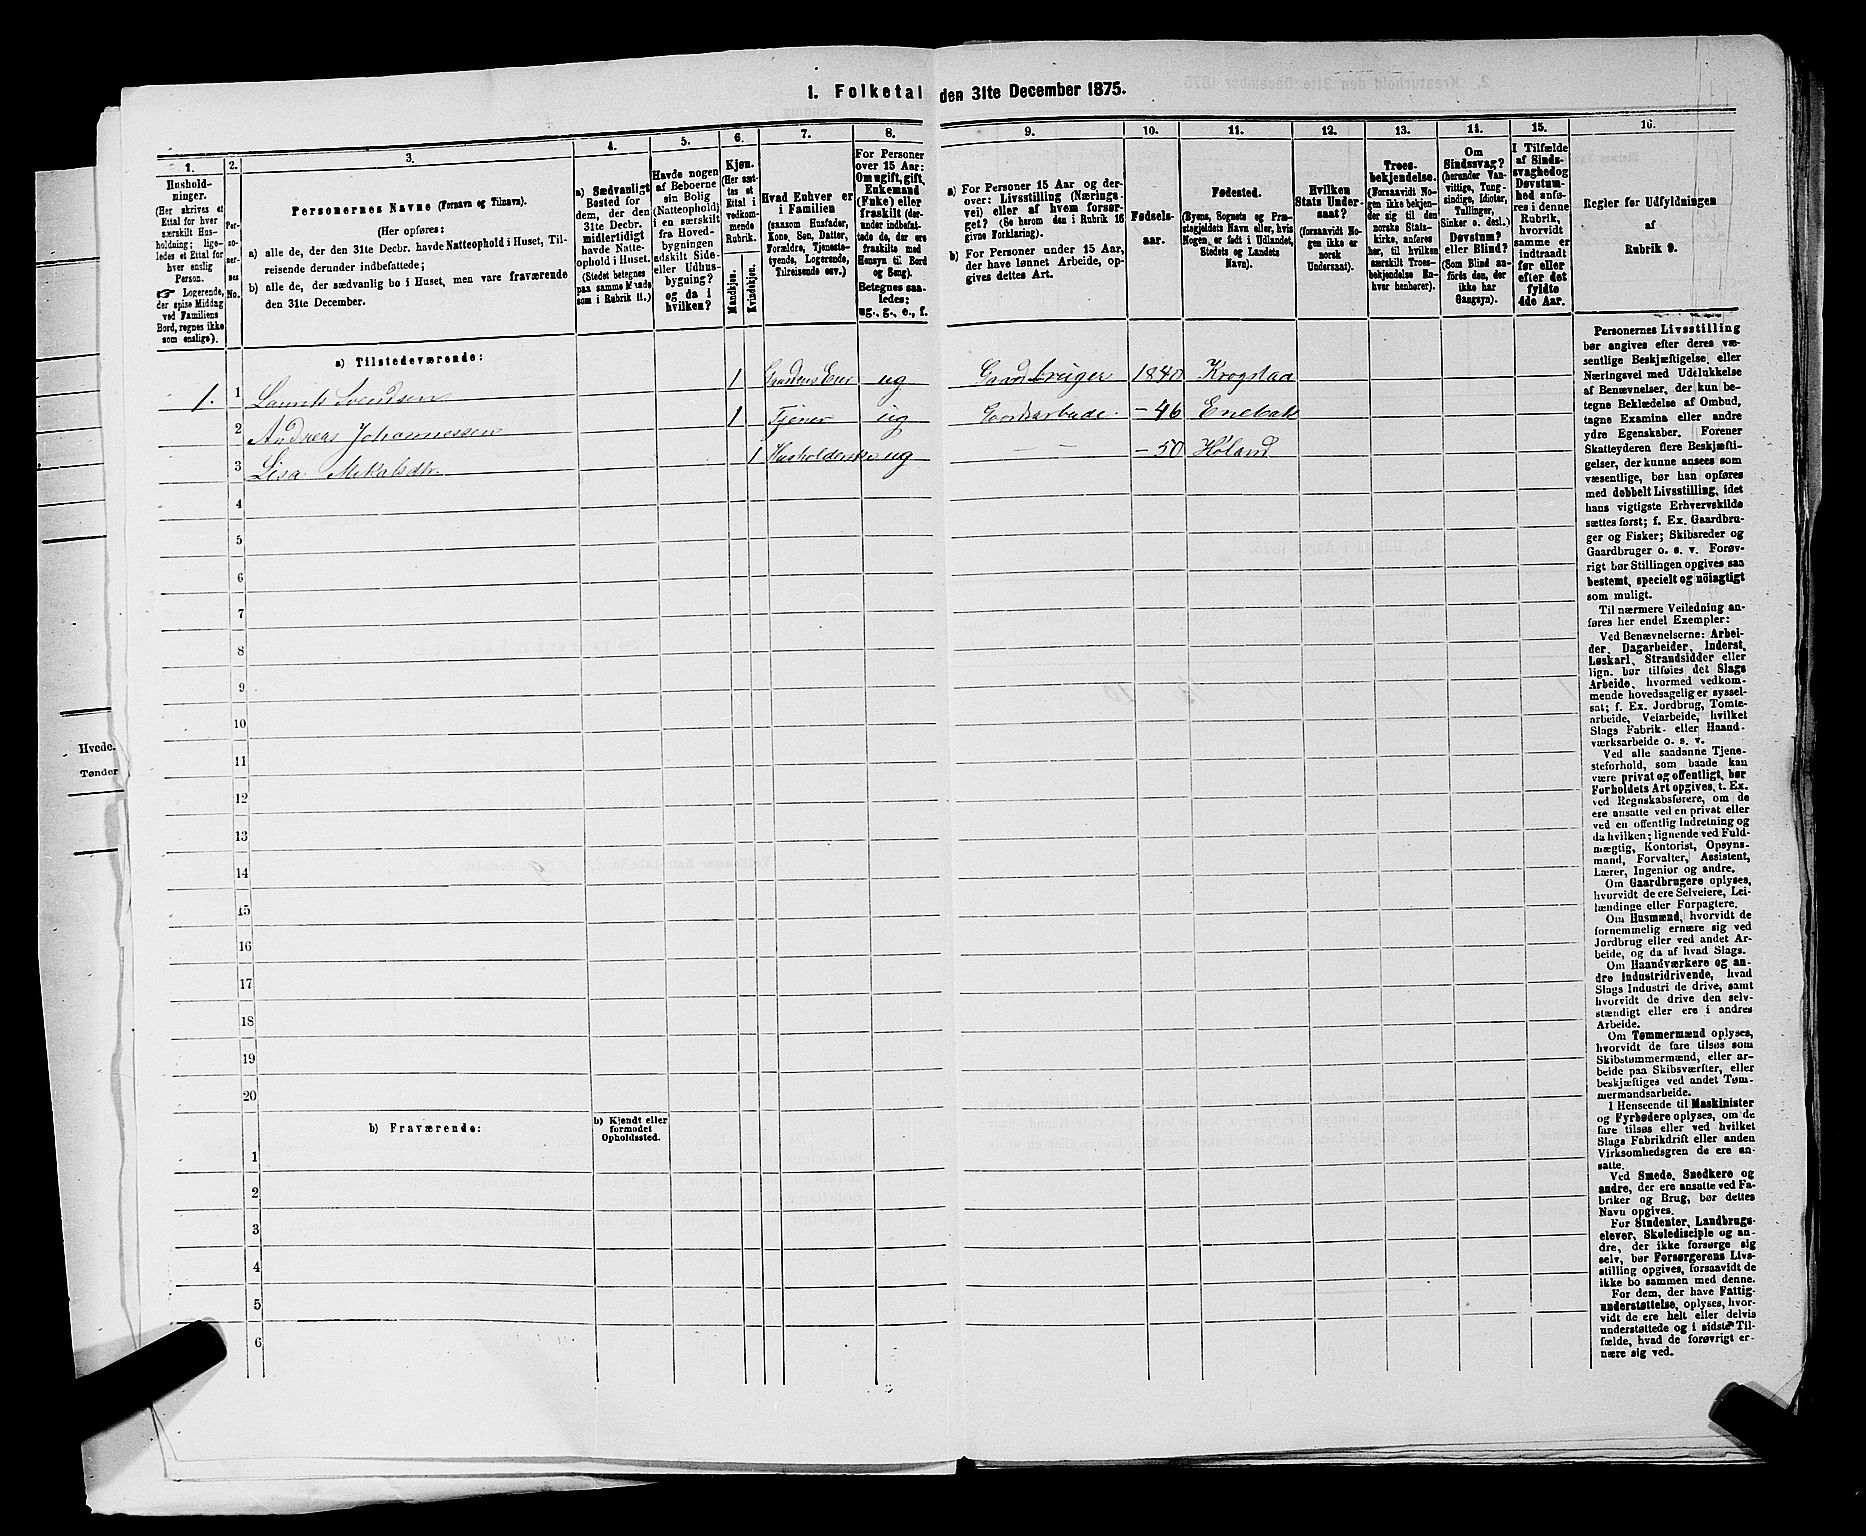 1. Folketal den 31te December 1875.
1. 2. 3. 4. 5. 6. 7. 8. 9. 10. 11. 12. 13. 14. 15. 16.
Hushold-
ninger.
(Her skrives et
Ettal for hver
særskilt Hus-
holdning; lige-
ledes et Ettal for
hver enslig
Person.
Logerende,
der spise Middag
ved Familiens
Bord, regnes ikke
som enslige).
Per-
so-
ner-
nes
No.
Personernes Navne (Fornavn og Tilnavn).
(Her opføres:
a) alle de, der den 31te Decbr. havde Natteophold i Huset, Til-
reisende derunder indbefattede;
b) alle de, der sædvanlig bo i Huset, men vare fraværende
den 31te December.
a) Sædvanligt
Bosted for
dem, der den
31te Decbr.
midlertidigt
havde Natte-
ophold i Huset.
(Stedet betegnes
paa samme Maade
som i Rubrik 11.)
Havde nogen
af Beboerne
sin Bolig
(Natteophold)
i en særskilt
fra Hoved-
bygningen
adskilt Side-
eller Udhus-
bygning?
og da i
hvilken?
Kjøn.
(Her sæt-
tes et
Ettal i
vedkom-
mende
Rubrik.
Mandkjøn.
Kvindekjøn.
Hvad Enhver er
i Familien
(saasom Husfader,
Kone, Søn, Datter,
Forældre, Tjeneste-
tyende, Logerende,
Tilreisende osv.)
For Personer
over 15 Aar:
Om ugift, gift,
Enkemand
(Enke) eller
fraskilt (der-
under indbefat-
tede de, der ere
fraskilte med
Hensyn til Bord
og Seng).
Betegnes saa-
ledes:
ug., g., e., f.
a) For Personer 15 Aar og der-
over: Livsstilling (Nærings-
vei) eller af hvem forsør-
get? (Se herom den i Rubrik 16
givne Forklaring).
b) For Personer under 15 Aar,
der have lønnet Arbeide, op-
gives dettes Art.
Fødsels-
aar.
Fødested.
(Byens, Sognets og Præ-
stegjeldets Navn eller, hvis
Nogen er født i Udlandet,
Stedets og Landets
Navn).
Hvilken
Stats Under-
saat?
(forsaavidt No-
gen ikke er
norsk
Undersaat).
Troes-
bekjendelse.
(Forsaavidt No-
gen ikke bekjen-
der sig til den
norske Stats-
kirke, anføres
her, til hvilken
særskilt Troes-
bekjendelse En-
hver henhører).
Om
Sindssvag?
(herunder Van-
vittige, Tung-
sindige, Idioter,
Tullinger,
Sinker o. desl.)
Døvstum?
eller Blind?
(Som Blind an-
føres den, der
ikke har
Gangsyn).
I Tilfælde
af Sinds-
svaghed og
Døvstum-
hed anfø-
res i denne
Rubrik,
hvorvidt
samme er
indtraadt
før eller
efter det
fyldte
4de Aar.
Regler for Udfyldningen
af
Rubrik 9.
a) Tilstedeværende:
1. 1 Laurits Svendsen 1 Gaardens Eier ug Gaardbruger 1840 Krogstad
2 Andreas Johannessen 1 Tjener ug Gaardsarbeide - 46 Enebak
3 Lisa Mikalsdtr. 1 Husholderske ug — - 50 Høland
4
5
6
7
8
9
10
11
12
13
14
15
16
17
18
19
20
b) Fraværende:
b) Kjendt eller
formodet
Opholdssted.
1
2
3
4
5
6
Personernes Livsstilling
bør angives efter deres væ-
sentlige Beskjæftigelse eller
Næringsvei med Udelukkelse
af Benævnelser, der kun be-
tegne Beklædelse af Ombud,
tagne Examina eller andre
ydre Egenskaber. Forener
Skatteyderen flere Beskjæfti-
gelser, der kunne ansees som
væsentlige, bør han opføres
med dobbelt Livsstilling, idet
hans vigtigste Erhvervskilde
sættes først; f. Ex. Gaardbru-
ger og Fisker; Skibsreder og
Gaardbruger o. s. v. Forøv-
rigt bør Stillingen opgives saa
bestemt, specielt og nöiagtigt
som muligt.
Til nærmere Veiledning an-
føres her endel Exempler:
Ved Benævnelserne: Arbei-
der, Dagarbeider, Inderst,
Løskarl, Strandsidder eller
lign. bør tilføies det Slags
Arbeide, hvormed vedkom-
mende hovedsagelig er syssel-
sat; f. Ex. Jordbrug, Tomte-
arbeide, Veiarbeide, hvilket
Slags Fabrik- eller Haand-
værksarbeide o. s. v.
Ved alle saadanne Tjene-
steforhold, som baade kan
være privat og offentligt, bør
Forholdets Art opgives, t. Ex.
ved Regnskabsførere, om de
ere ansatte ved en privat eller
ved en offentlig Indretning og
da hvilken; lignende ved Fuld-
mægtig, Kontorist, Opsyns-
mand, Forvalter, Assistent,
Lærer, Ingeniør og andre.
Om Gaardbrugere oplyses,
hvorvidt de ere Selveiere, Lei-
lændinge eller Forpagtere.
Om Husmænd, hvorvidt de
fornemmelig ernære sig ved
Jordbrug eller ved andet Ar-
beide, og da af hvad Slags.
Om Haandværkere og an-
dre Industridrivende, hvad
Slags Industri de drive, samt
hvorvidt de drive den selv-
stændigt eller ere i andres
Arbeide.
Om Tømmermænd oplyses,
hvorvidt de fare tilsøs som
Skibstømmermænd, eller ar-
beide paa Skibsværfter, eller
beskjæftiges ved andet Tøm-
mermandsarbeide.
I Henseende til Maskinister
og Fyrbødere oplyses, om de
fare tilsøs eller ved hvilket
Slags Fabrikdrift eller anden
Virksomhedsgren de ere an-
satte.
Ved Smede, Snedkere og
andre, der ere ansatte ved Fa-
briker og Brug, bør dettes
Navn opgives.
For Studenter, Landbrugs-
elever, Skoledisciple og an-
dre, der ikke forsørge sig
selv, bør Forsørgerens Livs-
stilling opgives, forsaavidt de
ikke bo sammen med denne.
For dem, der have Fattig-
understøttelse, oplyses, hvor-
vidt de ere helt eller delvis
understøttede og i sidste Til-
fælde, hvad de forøvrigt er-
nære sig ved.
Hvede.
Tønder